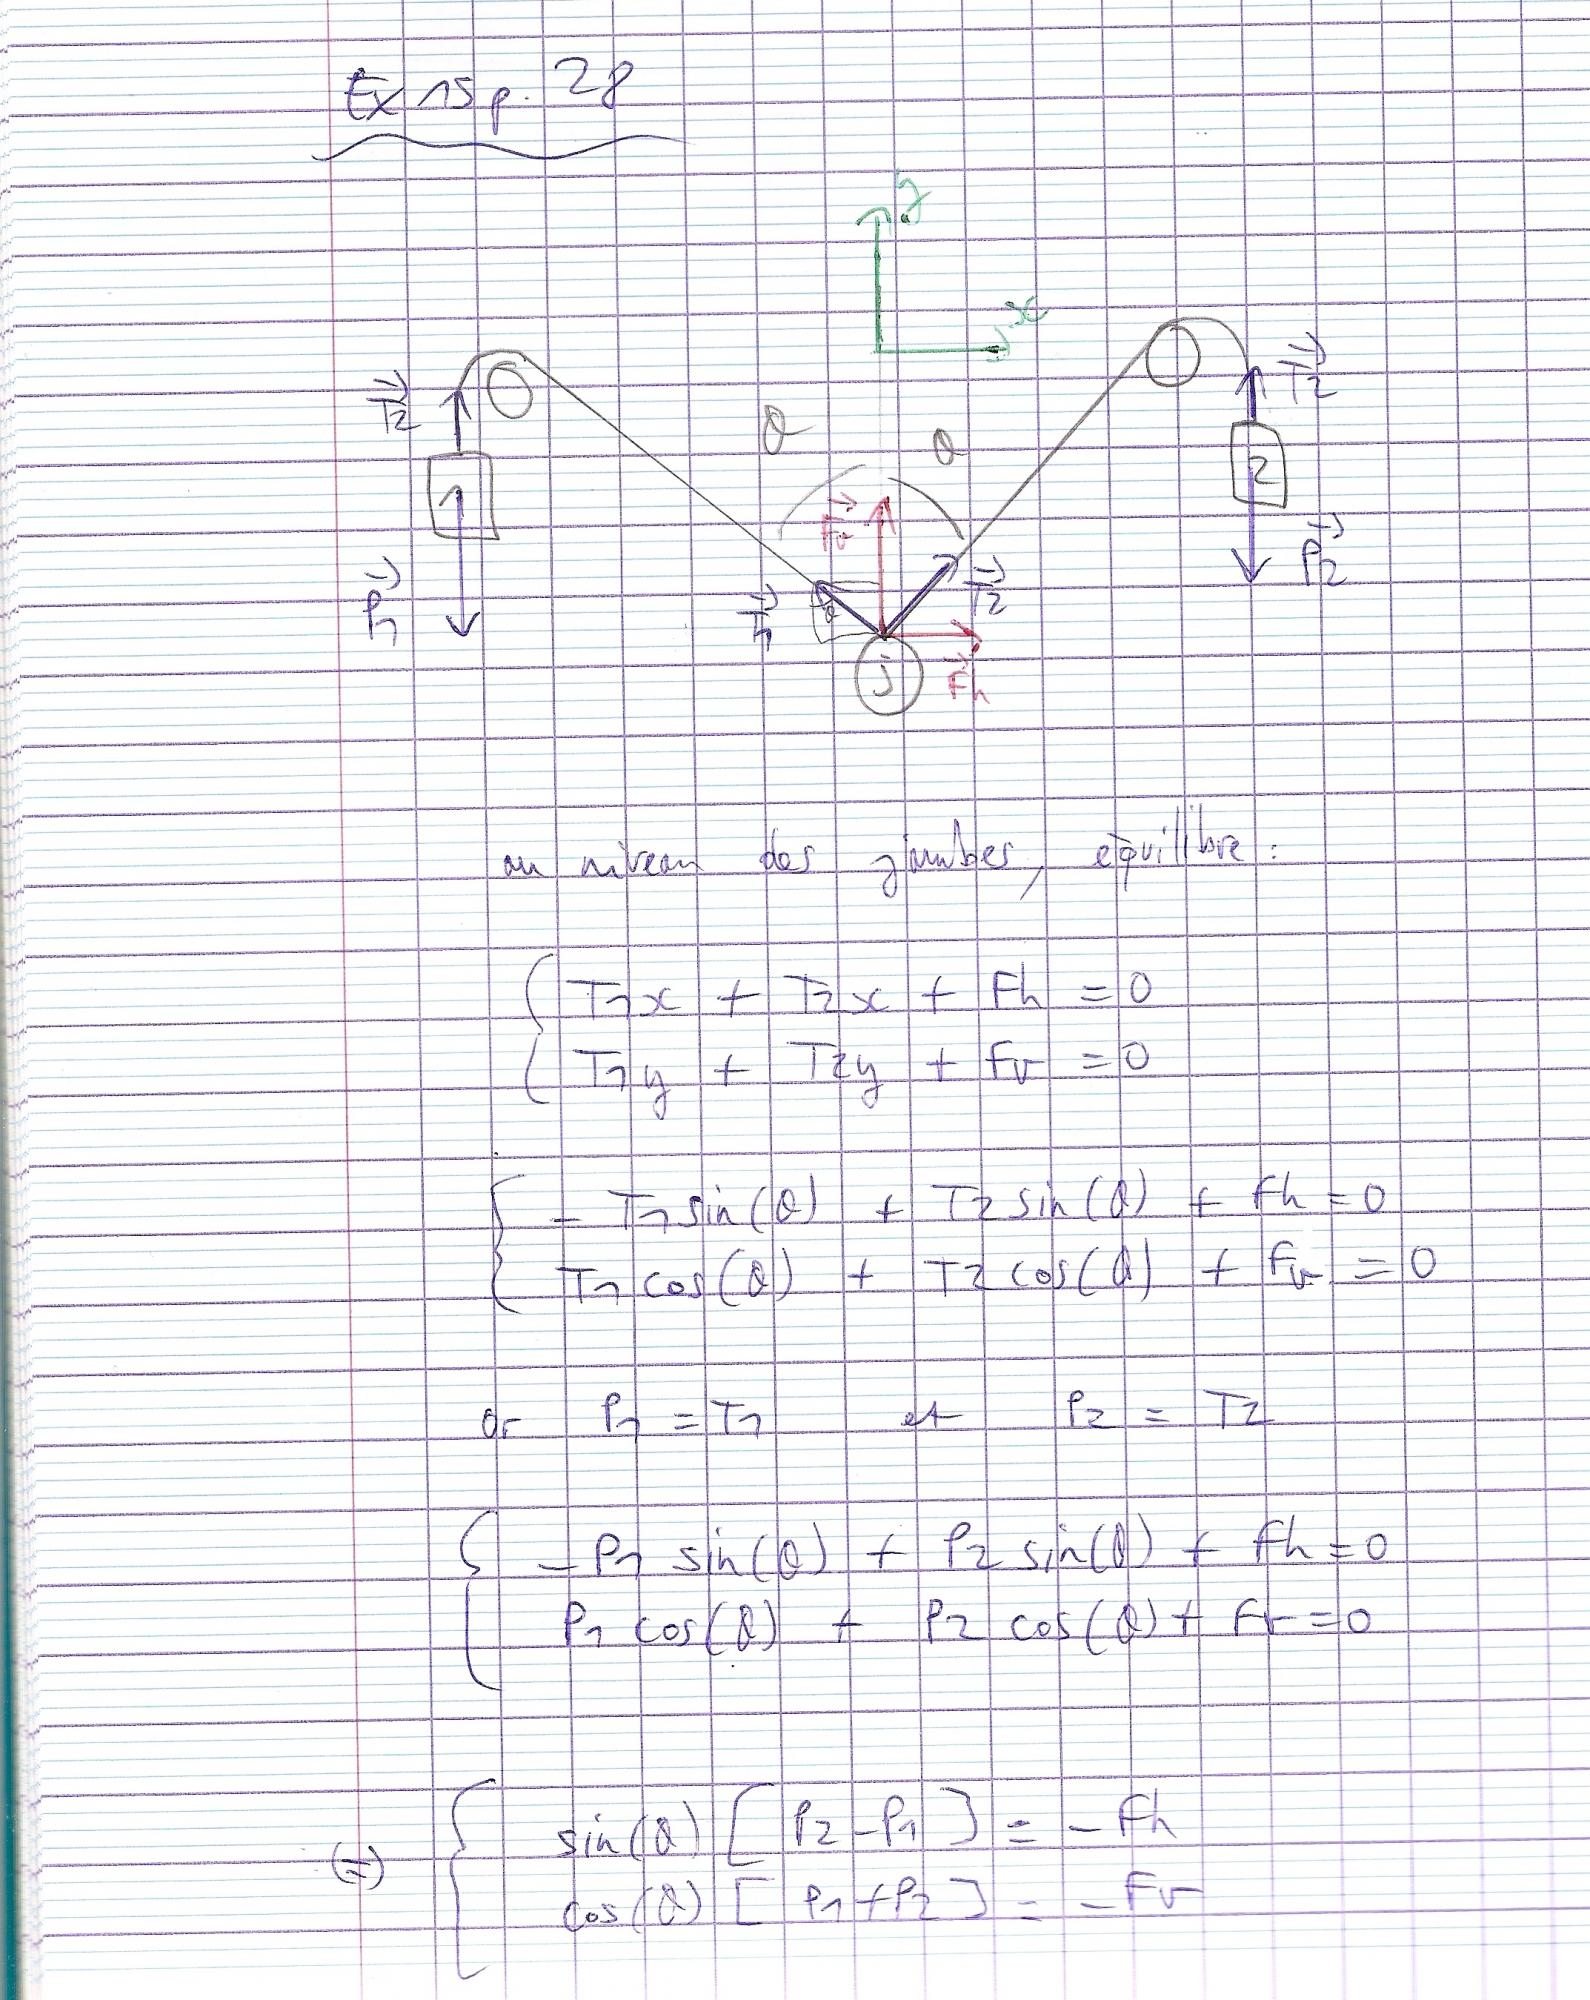 Ex 15 p. 28
y
x
T2
T2
θ
θ
1
2
Fv
P2
T1
T2
θ
P1
J
Fh
au niveau des jambes, équilibre :
T1x + T2x + Fh = 0
T1y + T2y + Fv = 0
- T1 sin(θ) + T2 sin(θ) + Fh = 0
T1 cos(θ) + T2 cos(θ) + Fv = 0
or P1 = T1 et P2 = T2
- P1 sin(θ) + P2 sin(θ) + Fh = 0
P1 cos(θ) + P2 cos(θ) + Fv = 0
(=) sin(θ) [ P2 - P1 ] = - Fh
cos(θ) [ P1 + P2 ] = - Fv